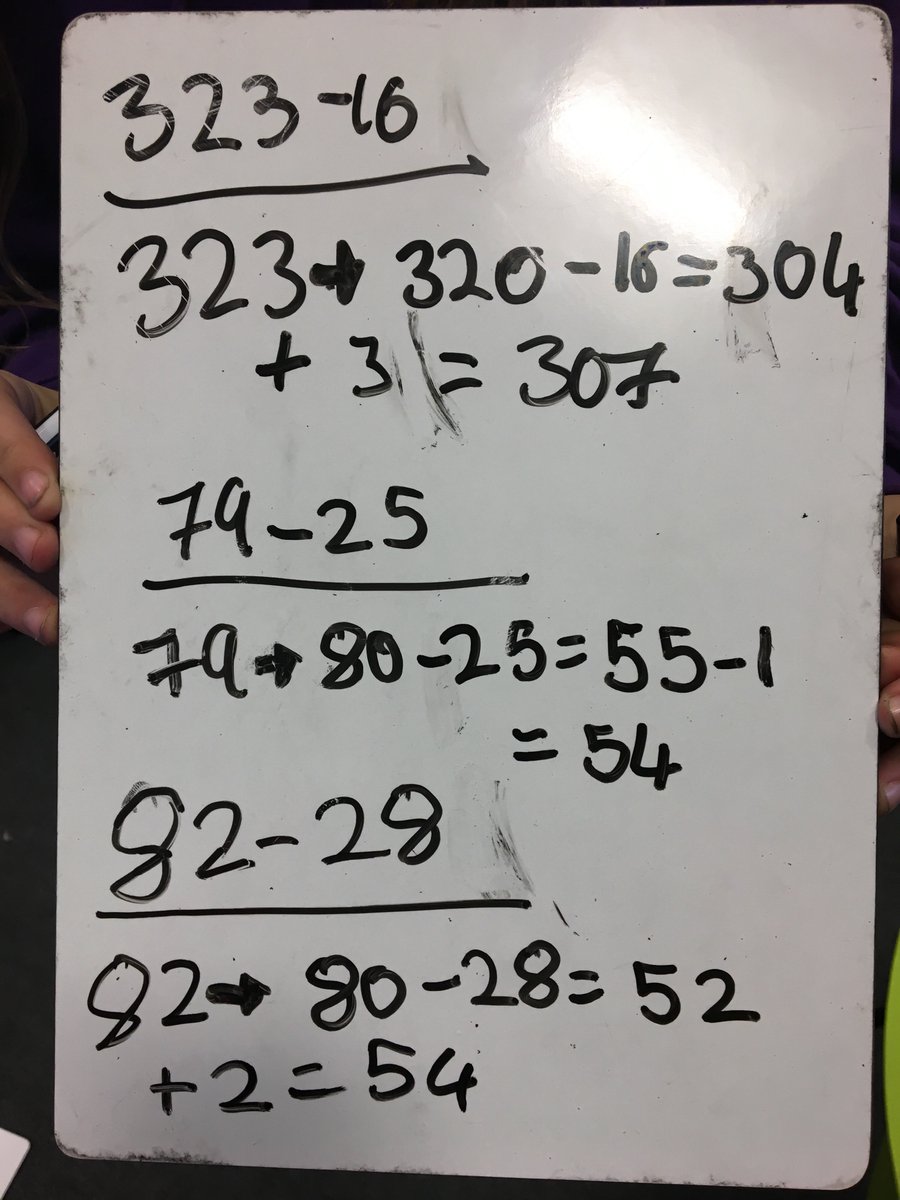 323-16
323→ 320-16=304
+ 3 = 307
79-25
79→80-25=55-1
= 54
82-28
82→ 80-28=52
+2=54